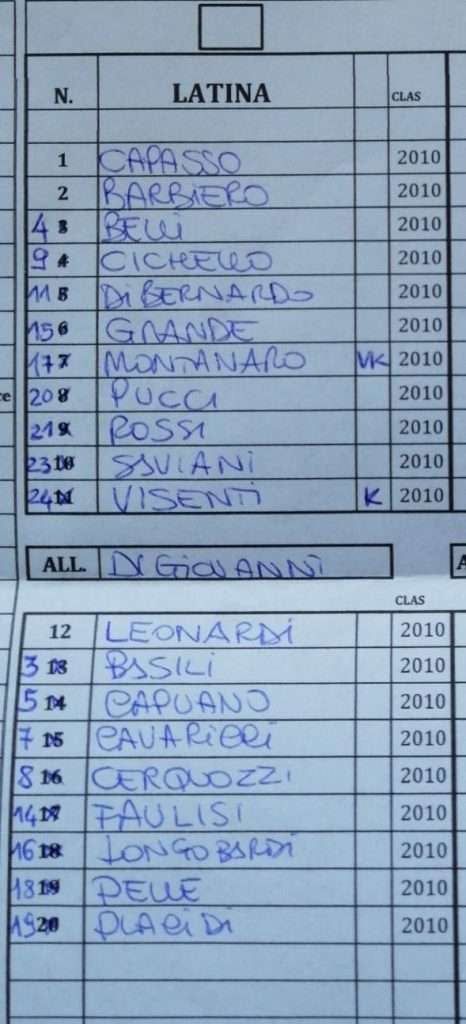 N. LATINA CLAS
1 CAPASSO 2010
2 BARBIERO 2010
4 3 BELLI 2010
9 4 CICHELLO 2010
11 5 DI BERNARDO 2010
15 6 GRANDE 2010
17 7 MONTANARO VK 2010
20 8 PUCCI 2010
21 9 ROSSI 2010
23 10 SAVIANI 2010
24 11 VISENTI K 2010
ALL. DI GIOVANNI
CLAS
12 LEONARDI 2010
3 13 BASILI 2010
5 14 CAPUANO 2010
7 15 CAVARICCI 2010
8 16 CERQUOZZI 2010
14 17 FAULISI 2010
16 18 LONGOBARDI 2010
18 19 PELLE 2010
19 20 PLACIDI 2010